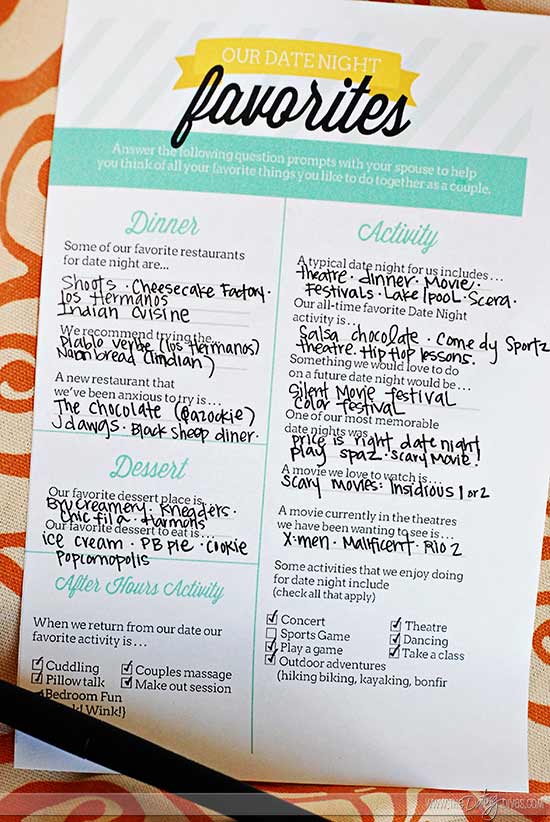 OUR DATE NIGHT
favorites
Answer the following question prompts with your spouse to help
you think of all your favorite things you like to do together as a couple.
Dinner
Some of our favorite restaurants
for date night are...
Shoots · Cheesecake Factory ·
Los Hermanos
Indian Cuisine
We recommend trying the...
Diablo Verde (Los Hermanos)
Naan bread (Indian)
A new restaurant that
we've been anxious to try is...
The Chocolate (@azookie)
Jdawgs · Black Sheep diner ·
Dessert
Our favorite dessert place is...
Byu Creamery · Kneaders ·
Chic fil a · Harmons
Our favorite dessert to eat is...
ice cream · PB pie · cookie
popcornopolis
After Hours Activity
When we return from our date our
favorite activity is...
Cuddling
Pillow talk
Bedroom Fun
Wink!}
Couples massage
Make out session
Activity
A typical date night for us includes...
theatre · dinner · Movie ·
Festivals · Lake/pool · Scera ·
Our all-time favorite Date Night
activity is...
Salsa chocolate · Comedy Sportz
theatre · Hip Hop lessons.
Something we would love to do
on a future date night would be...
Silent Movie festival
Color festival
One of our most memorable
date nights was...
price is right date night
play spaz · Scary Movie!
A movie we love to watch is...
Scary movies: Insidious 1 or 2
A movie currently in the theatres
we have been wanting to see is...
X-men · Malificent · Rio 2
Some activities that we enjoy doing
for date night include
(check all that apply)
Concert
Sports Game
Play a game
Outdoor adventures
(hiking biking, kayaking, bonfir
Theatre
Dancing
Take a class
www.theDatingDivas.com